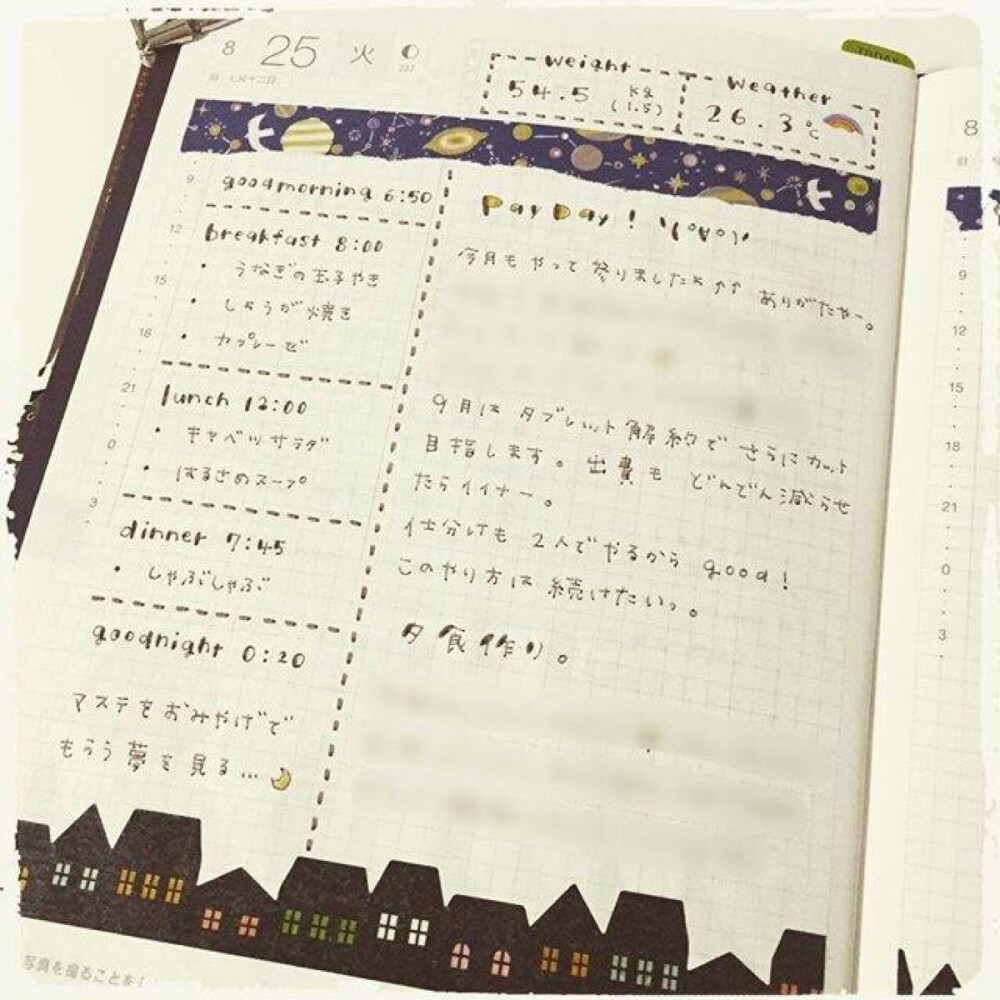 8 25 火
旧 七月十二日
237
weight
54.5 kg (1.5)
weather
26.3℃
TODAY
goodmorning 6:50
breakfast 8:00
・うなぎの玉子やき
・しょうが焼き
・カプレーゼ
lunch 12:00
・キャベツサラダ
・はるさめスープ
dinner 7:45
・しゃぶしゃぶ
goodnight 0:20
マステをおみやげで
もらう夢を見る…
Pay Day! \(°∀°)/
今月もやって参りました ↑↑ ありがたやー。
9月は タブレット解約で さらにカット
目指します。出費も どんどん減らせ
たらイイナー。
仕分けも 2人でやるから good!
このやり方は 続けたいっ。
夕食作り。
9
12
15
18
21
0
3
8
9
12
15
18
21
0
3
写真を撮ることを!